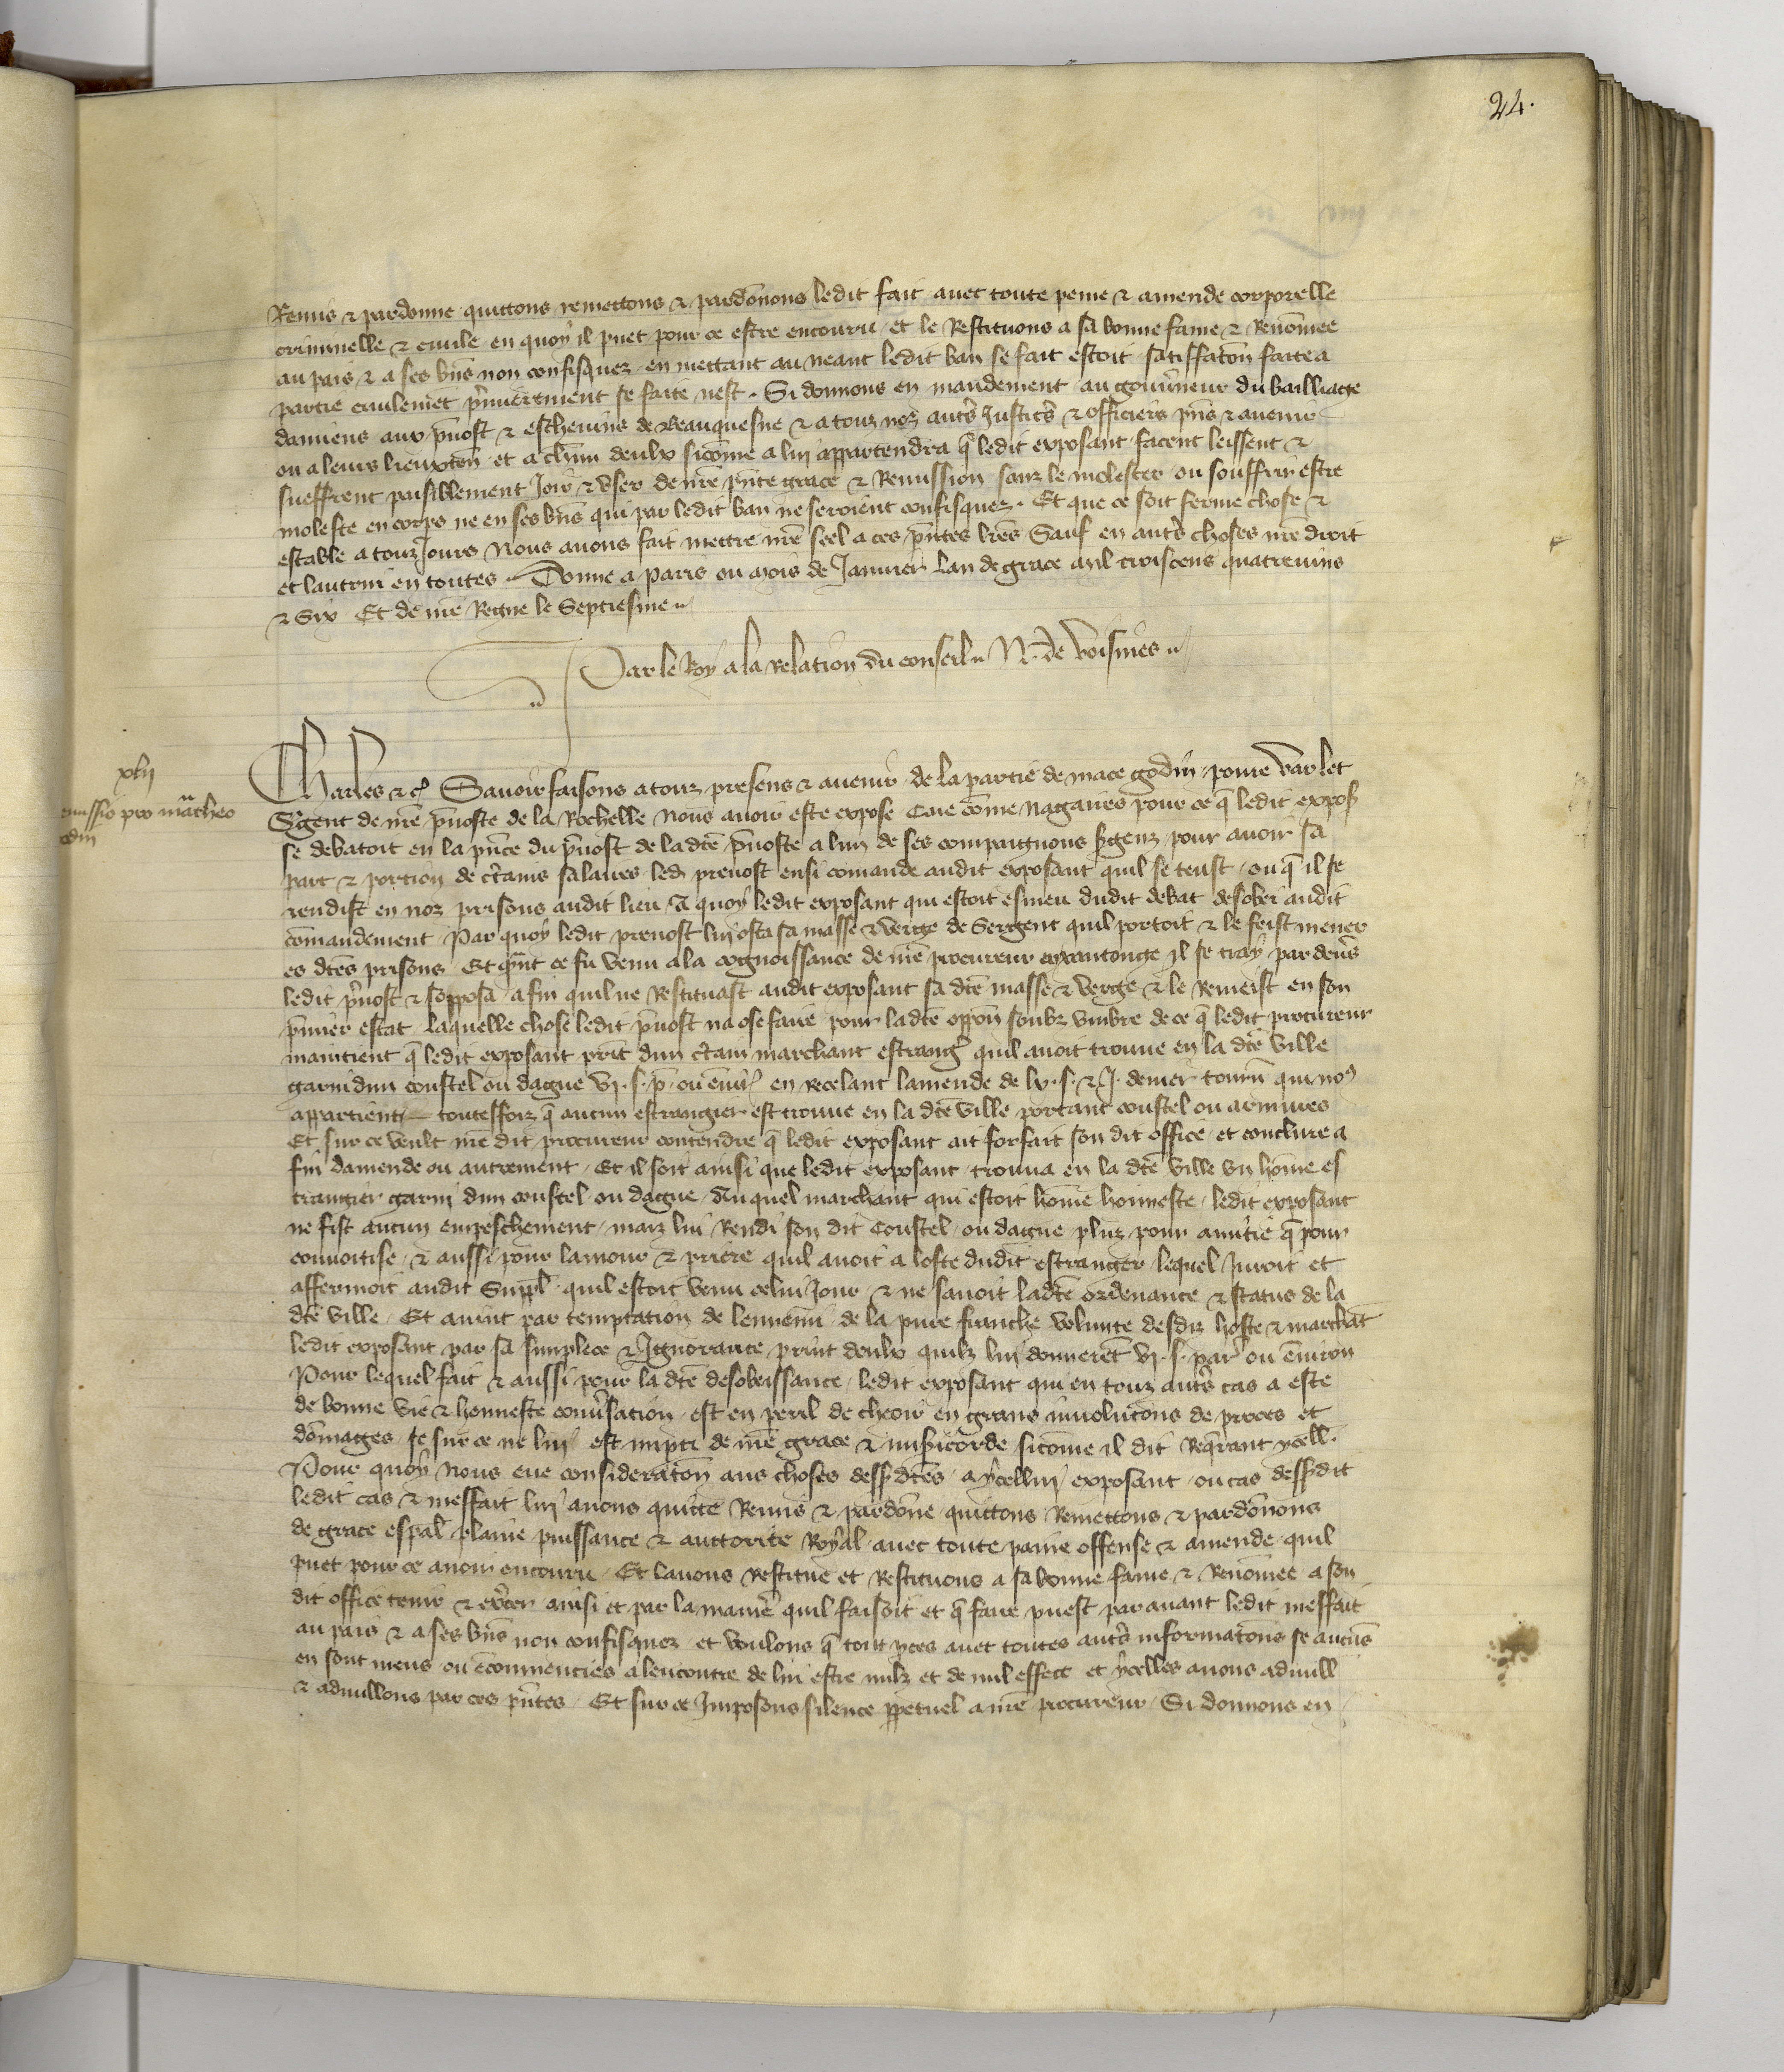 24.
Remis & pardonne quittons remettons & pardōnons ledit fait avec toute peine & amende corporelle
criminelle & civile en quoy il puet pour ce estre encouru et le Restituons a sa bonne fame & Renōmee
au pais & a ses bn̄s non confisquez en mettant au neant ledit ban se fait estoit satiffacōn faite a
partie civilemēt p̄mierement se faite nest. Si donnons en mandement au gouv̄neur du bailliage
damiens aux p̄vost & eschevins de Beauquesne & a touz noz autr̄s Justic̄s & officiers pn̄s & avenir
ou a leurs lieuxten̄ et a chūn deulx sicōme a lui appartendra q̄ ledit exposant facent leissent &
sueffrent paisiblement Joir & User de nr̄e pn̄te grace & Remission sanz le molester ou souffrir estre
moleste en corps ne en ses bn̄s qui par ledit ban ne seroient confisquez. Et que ce soit ferme chose &
estable a touzJours Nous avons fait mettre nr̄e seel a ces pn̄tes lr̄es Sauf en autr̄s choses nr̄e droit
et lautrui en toutes Donne a Paris ou mois de Janvier Lan de grace mil troiscens quatrevins
& Six Et de nr̄e Regne le Septiesme
Par le Roy a la relation du conseil N. de Voisines
xlij
emissio pro matheo
odin
Charles &c̄ Savoir faisons a touz presens & avenir de la partie de mace godin povre varlet
S̄gent de nr̄e p̄voste de la Rochelle Nous avoir este expose Que cōme nagaires pour ce q̄ ledit expos̄
se debatoit en la pn̄ce du p̄vost de la dc̄e p̄voste a lun de ses compaignons s̄genz pour avoir sa
part & portion de c̄tains salaires led prevost ensi comande audit exposant quil se teust ou q̄ il se
rendist en noz prisons audit lieu A quoy ledit exposant qui estoit esmeu dudit debat desobei audit
cōmandement Par quoy ledit prevost lui osta sa masse & verge de Sergent quil portoit & le feist mener
es dc̄es prisons Et qn̄t ce fu venu a la cognoissance de nr̄e procureur en xantonge il se tray par dev̄s
ledit p̄vost & sopposa afin quil ne Restituast audit exposant sa dc̄e masse & verge & le Remeist en son
p̄mier estat laquelle chose ledit p̄vost na ose faire pour ladc̄e oppōn soubz umbre de ce q̄ ledit procureur
maintient q̄ ledit exposant prīt dun c̄tain marchant estranḡ quil avoit trouve en la dc̄e ville
garni dun coustel ou dague vj. s. p̄. ou env̄ en recelant lamende de lx. s. & j. denier tourn̄ qui no9
appartient toutesfoiz q̄ aucun estrangier est trouve en la dc̄e ville portant coustel ou armures
Et sur ce veult nr̄e dit procureur contendre q̄ ledit exposant ait forfait son dit office et conclure a
fin damende ou autrement Et il soit ainsi que ledit exposant trouva en la dc̄e ville un hōme es
trangier garni dun coustel ou dague Auquel marchant qui estoit hōme honneste ledit exposant
ne fist aucun empeschement maiz lui Rendi son dit Coustel ou dague plus pour amitie q̄ pour
convoitise & aussi pour lamour & priere quil avoit a loste dudit estranger lequel Juroit et
affermoit audit Suppl̄ quil estoit venu celui Jour & ne savoit ladc̄e ordenance & status de la
dc̄e ville Et avint par temptation de lennemi de la pure franche volunte desdiz hoste & marchāt
ledit exposant par sa simplece & Ignorance print deulx quilz lui donnerēt vj. s. par̄ ou ēviron
Pour lequel fait & aussi pour la dc̄e desobeissance ledit exposant qui en touz autr̄s cas a este
de bonne vie & honneste conv̄sation est en peril de cheoir en grans involucōns de proces et
dōmages se sur ce ne lui est imp̄ti de nr̄e grace & mis̄icorde sicōme il dit Req̄rant ycell̄
Pour quoy Nous eue consideratōn aus choses dess̄dc̄es a ycellui exposant ou cas dess̄dit
ledit cas & meffait lui avons quitte Remis & pardōne quittons Remettons & pardōnons
de grace esp̄al plaine puissance & auctorite Royal avec toute paine offense & amende quil
puet pour ce avoir encouru Et lavons Restitue et Restituons a sa bonne fame & Renōmee a son
dit office tenir & ex̄cer ainsi et par la manīe quil faisoit et q̄ faire puest par avant ledit meffait
au pais & a ses bn̄s non confisquez et voulons q̄ tout p̄ces avec toutes autr̄s informatōns se aucūs
en sont meus ou ēcommencies alencontre de lui estre nulz et de nul effect et ycelles avons adnull
& adnullons par ces pn̄tes Et sur ce Imposons silence p̄petuel a nr̄e procureur Si donnons en